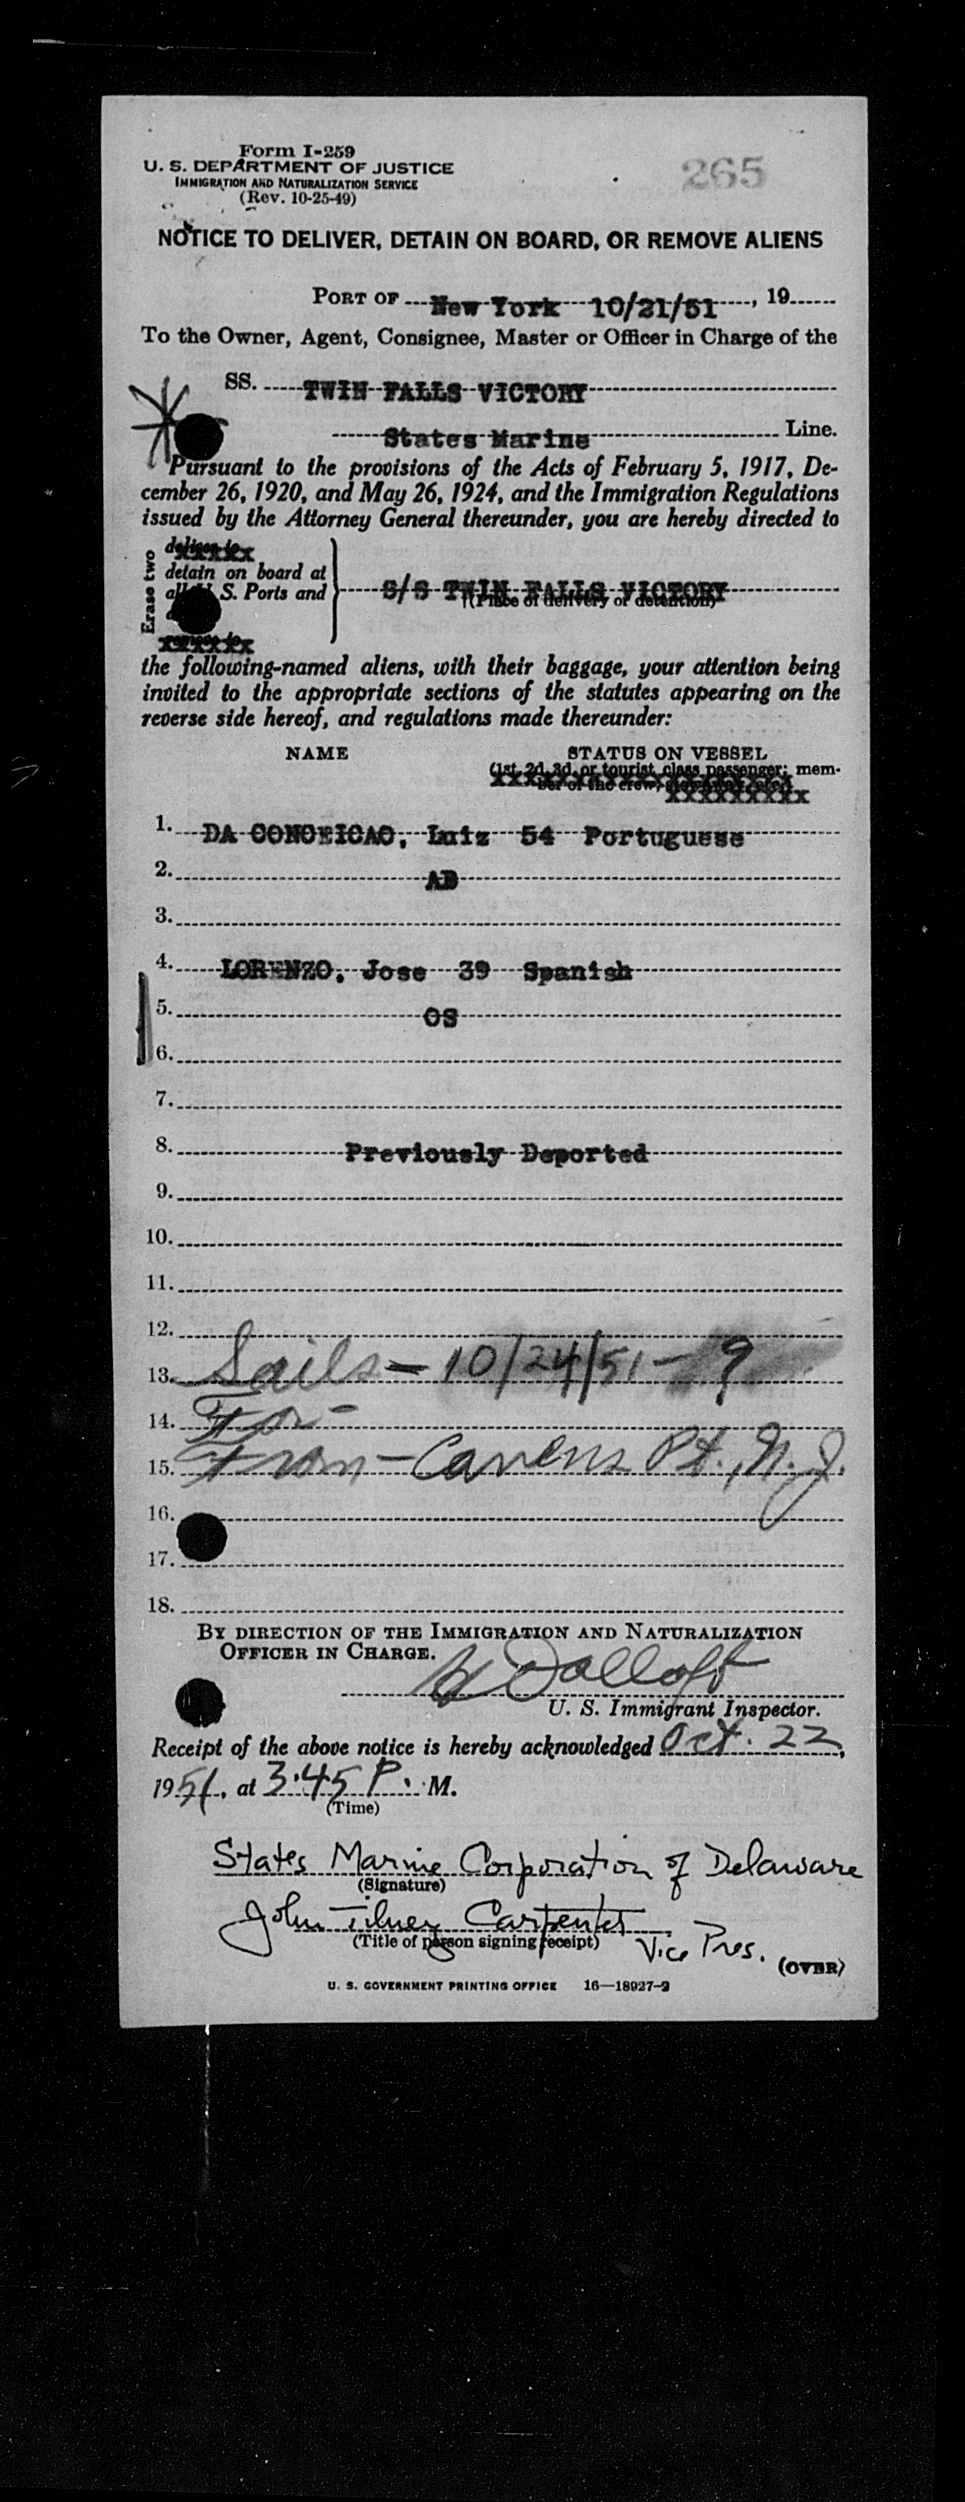 Form I-259
265
U. S. DEPARTMENT OF JUSTICE
IMMIGRATION AND NATURALIZATION SERVICE
(Rev. 10-25-49)
NOTICE TO DELIVER, DETAIN ON BOARD, OR REMOVE ALIENS
PORT OF New York 10/21/51, 19
To the Owner, Agent, Consignee, Master or Officer in Charge of the
SS. TWIN FALLS VICTORY
States Marine Line.
Pursuant to the provisions of the Acts of February 5, 1917, De-
cember 26, 1920, and May 26, 1924, and the Immigration Regulations
issued by the Attorney General thereunder, you are hereby directed to
Erase two
deliver to
detain on board at
all U. S. Ports and
S/S TWIN FALLS VICTORY
(Place of delivery or detention)
remove to
the following-named aliens, with their baggage, your attention being
invited to the appropriate sections of the statutes appearing on the
reverse side hereof, and regulations made thereunder:
NAME STATUS ON VESSEL
(1st, 2d, 3d, or tourist class passenger; mem-
ber of the crew,
1. DA CONCEICAO, Luiz 54 Portuguese
2. AB
3.
4. LORENZO, Jose 39 Spanish
5. OS
6.
7.
8. Previously Deported
9.
10.
11.
12.
13. Sails - 10/24/51 - 9
14. For -
15. From - Cavens Pt., N.J.
16.
17.
18.
BY DIRECTION OF THE IMMIGRATION AND NATURALIZATION
OFFICER IN CHARGE.
U. S. Immigrant Inspector.
Receipt of the above notice is hereby acknowledged Oct. 22,
1951, at 3:45 P. M.
(Time)
States Marine Corporation of Delaware
(Signature)
John Tilney Carpenter
(Title of person signing receipt) Vice Pres.
(OVER)
U. S. GOVERNMENT PRINTING OFFICE 16—18927-2